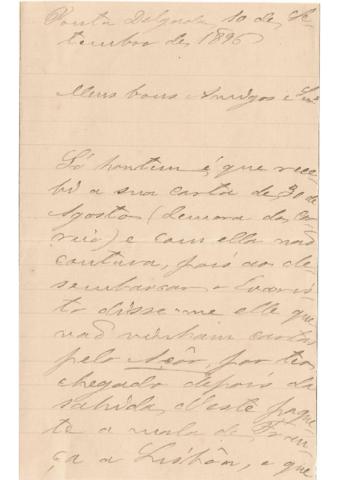 Ponta Delgada, 10 de Se-
tembro de 1896
Meus bons Amigos e Snr.
Só hontem é que rece-
bi a sua carta de 30 de
Agosto (demora do cor-
reio) e com ella não
contava, pois ao de-
sembarcar o
to disse-me elle que
não vinham cartas
pelo Açôr, por ter
chegado depois da
sahida d'este paque-
te a mala de Fran-
ça a Lisbôa, e que